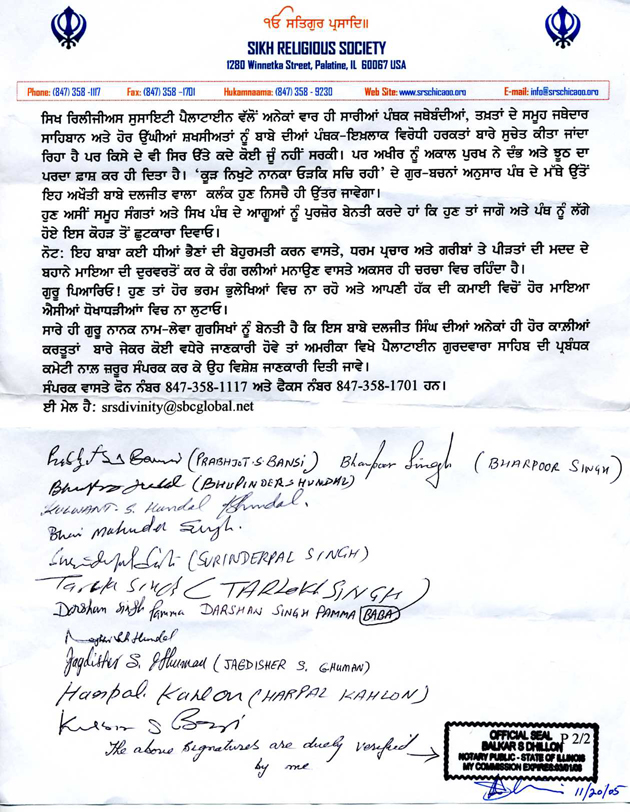 ੴ ਸਤਿਗੁਰ ਪ੍ਰਸਾਦਿ॥
SIKH RELIGIOUS SOCIETY
1280 Winnetka Street, Palatine, IL 60067 USA
Phone: (847) 358 -1117 Fax: (847) 358 -1701 Hukamnaama: (847) 358 - 9230 Web Site: www.srschicago.org E-mail: info@srschicago.org
ਸਿਖ ਰਿਲੀਜੀਅਸ ਸੁਸਾਇਟੀ ਪੈਲਾਟਾਈਨ ਵੱਲੋਂ ਅਨੇਕਾਂ ਵਾਰ ਹੀ ਸਾਰੀਆਂ ਪੰਥਕ ਜਥੇਬੰਦੀਆਂ, ਤਖ਼ਤਾਂ ਦੇ ਸਮੂਹ ਜਥੇਦਾਰ
ਸਾਹਿਬਾਨ ਅਤੇ ਹੋਰ ਉੱਘੀਆਂ ਸ਼ਖਸੀਅਤਾਂ ਨੂੰ ਬਾਬੇ ਦੀਆਂ ਪੰਥਕ-ਇਖ਼ਲਾਕ ਵਿਰੋਧੀ ਹਰਕਤਾਂ ਬਾਰੇ ਸੁਚੇਤ ਕੀਤਾ ਜਾਂਦਾ
ਰਿਹਾ ਹੈ ਪਰ ਕਿਸੇ ਦੇ ਵੀ ਸਿਰ ਉੱਤੇ ਕਦੇ ਕੋਈ ਜੂੰ ਨਹੀਂ ਸਰਕੀ। ਪਰ ਅਖੀਰ ਨੂੰ ਅਕਾਲ ਪੁਰਖ ਨੇ ਦੰਭ ਅਤੇ ਝੂਠ ਦਾ
ਪਰਦਾ ਫ਼ਾਸ਼ ਕਰ ਹੀ ਦਿਤਾ ਹੈ। 'ਕੂੜ ਨਿਖੁਟੇ ਨਾਨਕਾ ਓੜਕਿ ਸਚਿ ਰਹੀ' ਦੇ ਗੁਰ-ਬਚਨਾਂ ਅਨੁਸਾਰ ਪੰਥ ਦੇ ਮੱਥੇ ਉੱਤੋਂ
ਇਹ ਅਖੌਤੀ ਬਾਬੇ ਦਲਜੀਤ ਵਾਲਾ ਕਲੰਕ ਹੁਣ ਨਿਸਚੈ ਹੀ ਉੱਤਰ ਜਾਵੇਗਾ।
ਹੁਣ ਅਸੀਂ ਸਮੂਹ ਸੰਗਤਾਂ ਅਤੇ ਸਿਖ ਪੰਥ ਦੇ ਆਗੂਆਂ ਨੂੰ ਪੁਰਜ਼ੋਰ ਬੇਨਤੀ ਕਰਦੇ ਹਾਂ ਕਿ ਹੁਣ ਤਾਂ ਜਾਗੋ ਅਤੇ ਪੰਥ ਨੂੰ ਲੱਗੇ
ਹੋਏ ਇਸ ਕੋਹੜ ਤੋਂ ਛੁਟਕਾਰਾ ਦਿਵਾਓ।
ਨੋਟ: ਇਹ ਬਾਬਾ ਕਈ ਧੀਆਂ ਭੈਣਾਂ ਦੀ ਬੇਹੁਰਮਤੀ ਕਰਨ ਵਾਸਤੇ, ਧਰਮ ਪ੍ਰਚਾਰ ਅਤੇ ਗਰੀਬਾਂ ਤੇ ਪੀੜਤਾਂ ਦੀ ਮਦਦ ਦੇ
ਬਹਾਨੇ ਮਾਇਆ ਦੀ ਦੁਰਵਰਤੋਂ ਕਰ ਕੇ ਰੰਗ ਰਲੀਆਂ ਮਨਾਉਣ ਵਾਸਤੇ ਅਕਸਰ ਹੀ ਚਰਚਾ ਵਿਚ ਰਹਿੰਦਾ ਹੈ।
ਗੁਰੂ ਪਿਆਰਿਓ! ਹੁਣ ਤਾਂ ਹੋਰ ਭਰਮ ਭੁਲੇਖਿਆਂ ਵਿਚ ਨਾ ਰਹੋ ਅਤੇ ਆਪਣੀ ਹੱਕ ਦੀ ਕਮਾਈ ਵਿਚੋਂ ਹੋਰ ਮਾਇਆ
ਐਸੀਆਂ ਧੋਖਾਧੜੀਆਂ ਵਿਚ ਨਾ ਲੁਟਾਓ।
ਸਾਰੇ ਹੀ ਗੁਰੂ ਨਾਨਕ ਨਾਮ-ਲੇਵਾ ਗੁਰਸਿਖਾਂ ਨੂੰ ਬੇਨਤੀ ਹੈ ਕਿ ਇਸ ਬਾਬੇ ਦਲਜੀਤ ਸਿੰਘ ਦੀਆਂ ਅਨੇਕਾਂ ਹੀ ਹੋਰ ਕਾਲੀਆਂ
ਕਰਤੂਤਾਂ ਬਾਰੇ ਜੇਕਰ ਕੋਈ ਵਧੇਰੇ ਜਾਣਕਾਰੀ ਹੋਵੇ ਤਾਂ ਅਮਰੀਕਾ ਵਿਖੇ ਪੈਲਾਟਾਈਨ ਗੁਰਦਵਾਰਾ ਸਾਹਿਬ ਦੀ ਪ੍ਰਬੰਧਕ
ਕਮੇਟੀ ਨਾਲ ਜ਼ਰੂਰ ਸੰਪਰਕ ਕਰ ਕੇ ਉਹ ਵਿਸ਼ੇਸ਼ ਜਾਣਕਾਰੀ ਦਿਤੀ ਜਾਵੇ।
ਸੰਪਰਕ ਵਾਸਤੇ ਫੋਨ ਨੰਬਰ 847-358-1117 ਅਤੇ ਫੈਕਸ ਨੰਬਰ 847-358-1701 ਹਨ।
ਈ ਮੇਲ ਹੈ: srsdivinity@sbcglobal.net
(PRABHJOT.S.BANSI) Bharpur Singh (BHARPOOR SINGH)
(BHUPINDER S HUNDAL)
KULWANT. S. Hundal
Bhai Mahinder Singh.
(SURINDERPAL SINGH)
Tarlok Singh (TARLOKH SINGH)
Darshan Singh Pamma DARSHAN SINGH PAMMA (BABA)
Hundal
Jagdisher S. Ghuman (JAGDISHER S. GHUMAN)
Harpal Kahlon (HARPAL KAHLON)
The above signatures are duely verified
by me
OFFICIAL SEAL
BALKAR S DHILLON
NOTARY PUBLIC - STATE OF ILLINOIS
MY COMMISSION EXPIRES:03/01/08
P 2/2
11/20/05